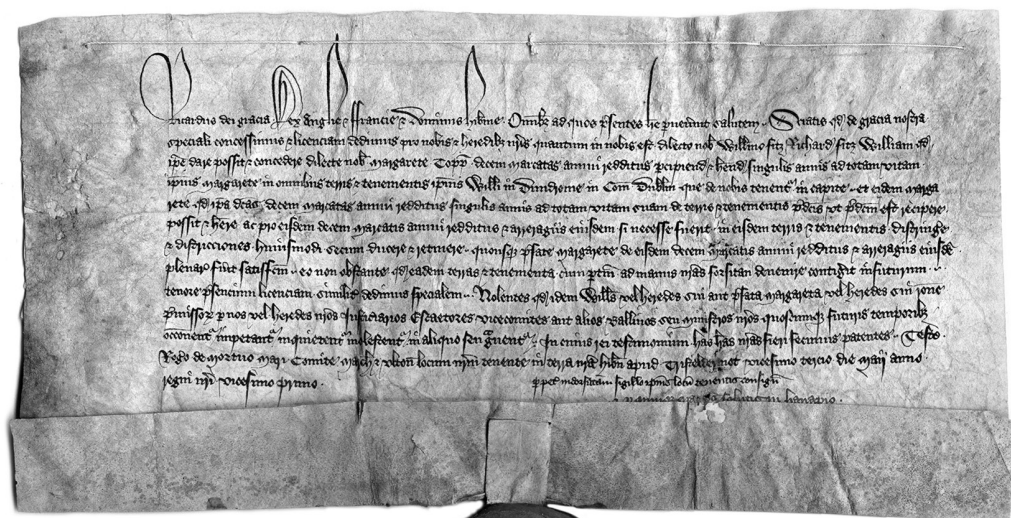 Ricardus dei gracia Rex Anglie & Francie & Dominus hibnie Omib3 ad quos psentes lre puenint salutem Sciatis qd de gracia nostra
speciali concessimus & licenciam dedimus pro nobis & heredib3 nris quantum in nobis est dilecto nob Willmo fitz Richard fitz William qd
ipe dare possit & concedere dilecte nob Margarete decem marcatas annui redditus pcipiend & hend singulis annis ad totam vitam
ipius Margarete in omnibus terris & tenementis ipius Willi in Dundrome in Com Dublin que de nobis tenent in capite et eidem Marga
rete qd ipa dcas decem marcatas annui redditus singulis annis ad totam vitam suam de terris & tenementis pdcis ut pdcm est recipere
possit & here ac pro eisdem decem marcatis annui redditus & arreragiis eiusdem si necesse fuerit in eisdem terris & tenementis distringe
& districciones huiusmodi secum ducere & retinere quousq3 pfate Margarete de eisdem decem marcatis annui redditus & arreragiis eiusdē
plenar fuit satisfcm eo non obstante qd eadem terras & tenementa ad manus nras forsitan devenire contigit infuturum
tenore psencium licenciam similit dedimus specialem Nolentes qd idem Willus vel heredes sui aut pfata Margareta vel heredes sui rone
pmissor p nos vel heredes nros Justiciarios Escaetores vicecomites aut alios Ballivos seu ministros nros quoscumq3 futuris temporib3
occonent impetant inquietent molestent in aliquo seu gvent In cuius rei testimonium has lras nras fieri fecimus patentes Teste
Rogo de Mortuo Mari Comite March & Ulton locum nrm tenente in terra nra hibn apud vicesimo tercio die Maii anno
regni nri vicesimo primo
sigillo ipius locū tenentis consign
in hanapio